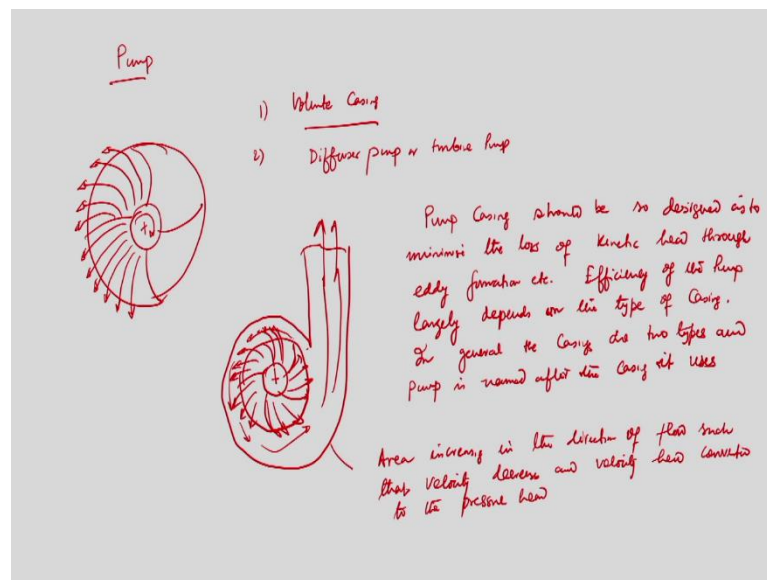 Pump
1) Volute Casing
2) Diffuser pump or turbine Pump
Pump Casing should be so designed as to
minimise the loss of kinetic head through
eddy formation etc. Efficiency of the Pump
largely depends on the type of Casing.
In general the Casings are two types and
pump is named after the Casing it uses
Area increasing in the direction of flow such
that velocity decrease and velocity head converted
to the pressure head